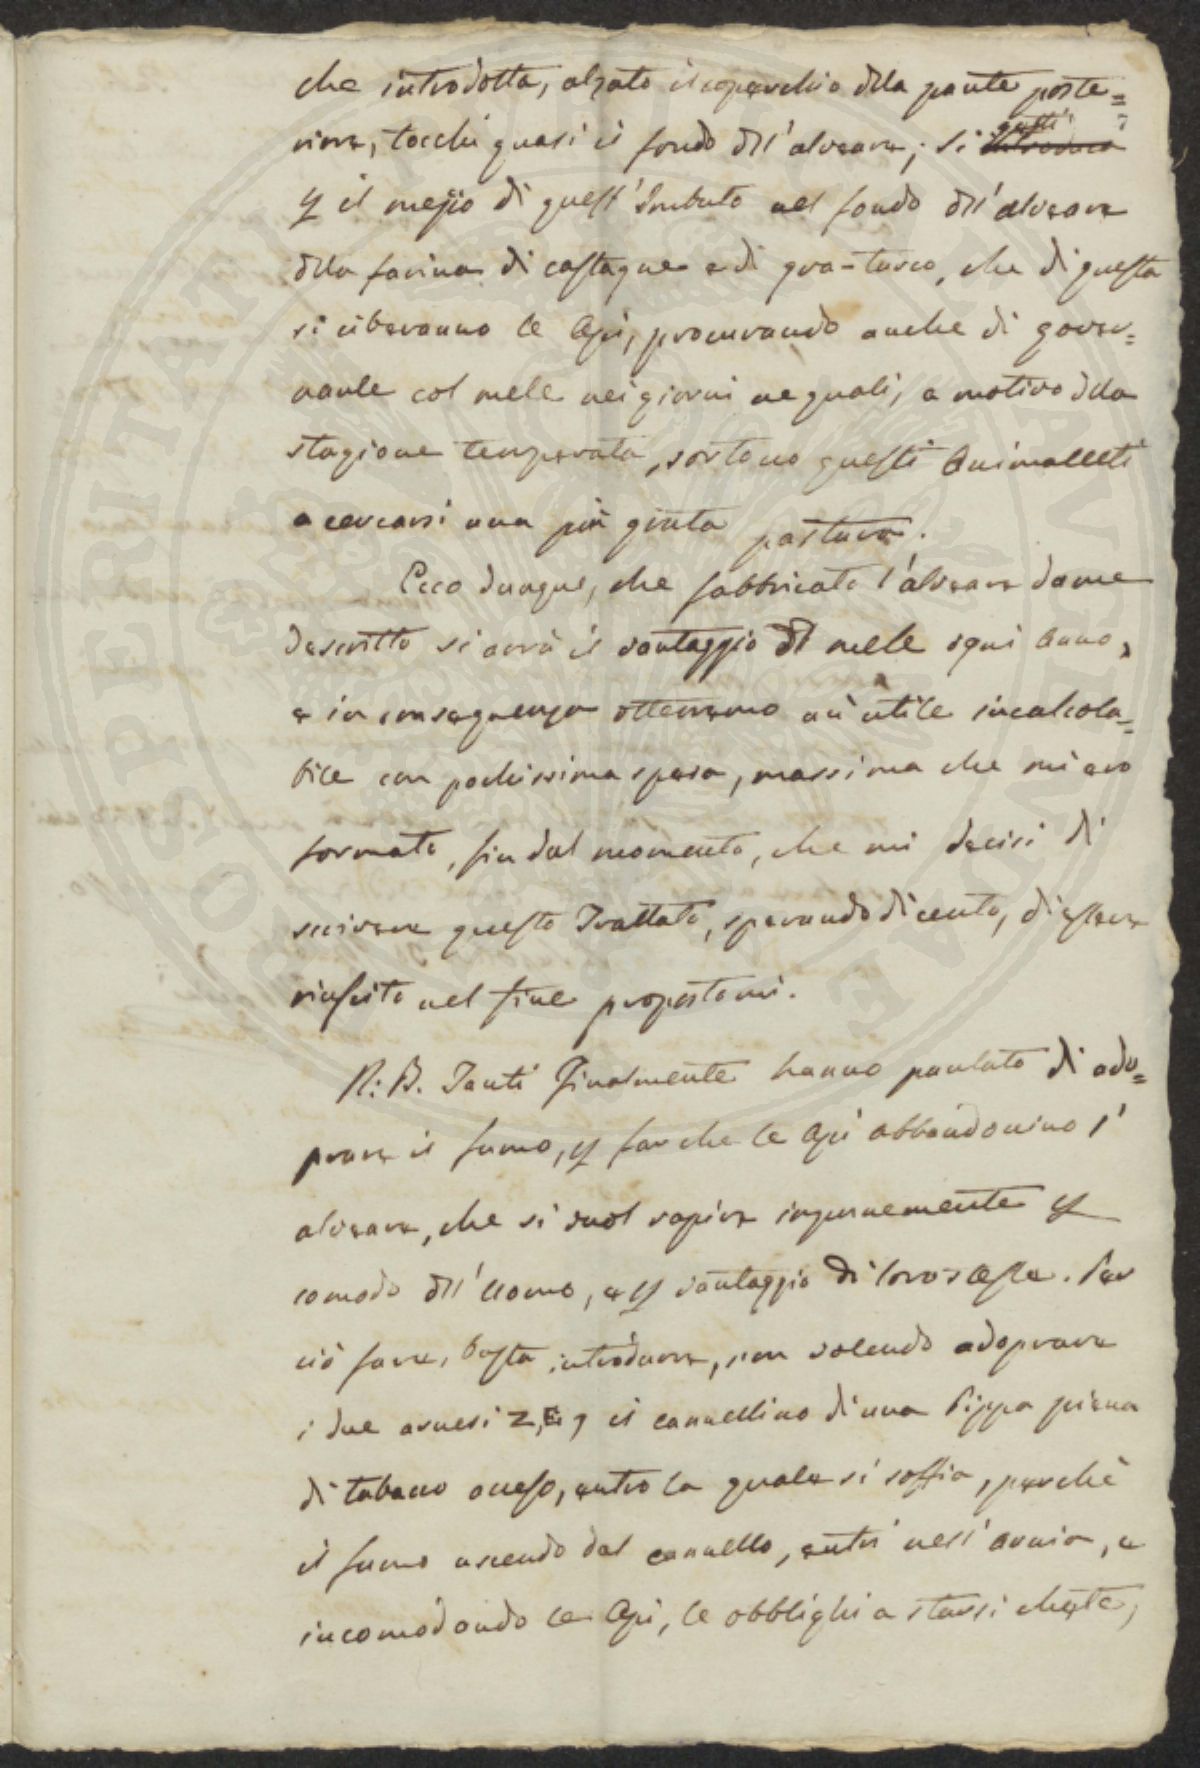 che introdotta, alzato il coperchio della parte poste=
riore, tocchi quasi il fondo dell'alveare; si getti
p il mezzo di quest'Imbuto nel fondo dell'alveare
della farina di castagne e di gra-turco, che di questa
si ciberanno le Api, procurando anche di gover=
narle col mele nei giorni ne quali, a motivo della
stagione temperata, sortono questi Animaletti
a cercarsi una più grata pastura.
Ecco dunque, che fabbricato l'alveare da me
descritto si avrà il vantaggio del mele ogni Anno,
e in conseguenza otterremo un'utile incalcola=
bile con pochissima spesa, massima che mi ero
formata, fin dal momento, che mi decisi di
scrivere questo Trattato, sperando di certo, di essere
riuscito nel fine propostomi.
N:B. Tanti Finalmente hanno parlato di ado=
prare il fumo, p far che le Api abbandonino l'
alveare, che si vuol rapire impunemente p
comodo dell'Uomo, e p vantaggio di loro stesse. Per
ciò fare, basta introdurre, non volendo adoprare
i due arnesi Z, E, il cannellino di una Pippa piena
di tabacco acceso, entro la quale si soffia, perchè
il fumo uscendo dal cannello, entri nell'Arnia, e
incomodando le Api, le obblighi a starsi chete,